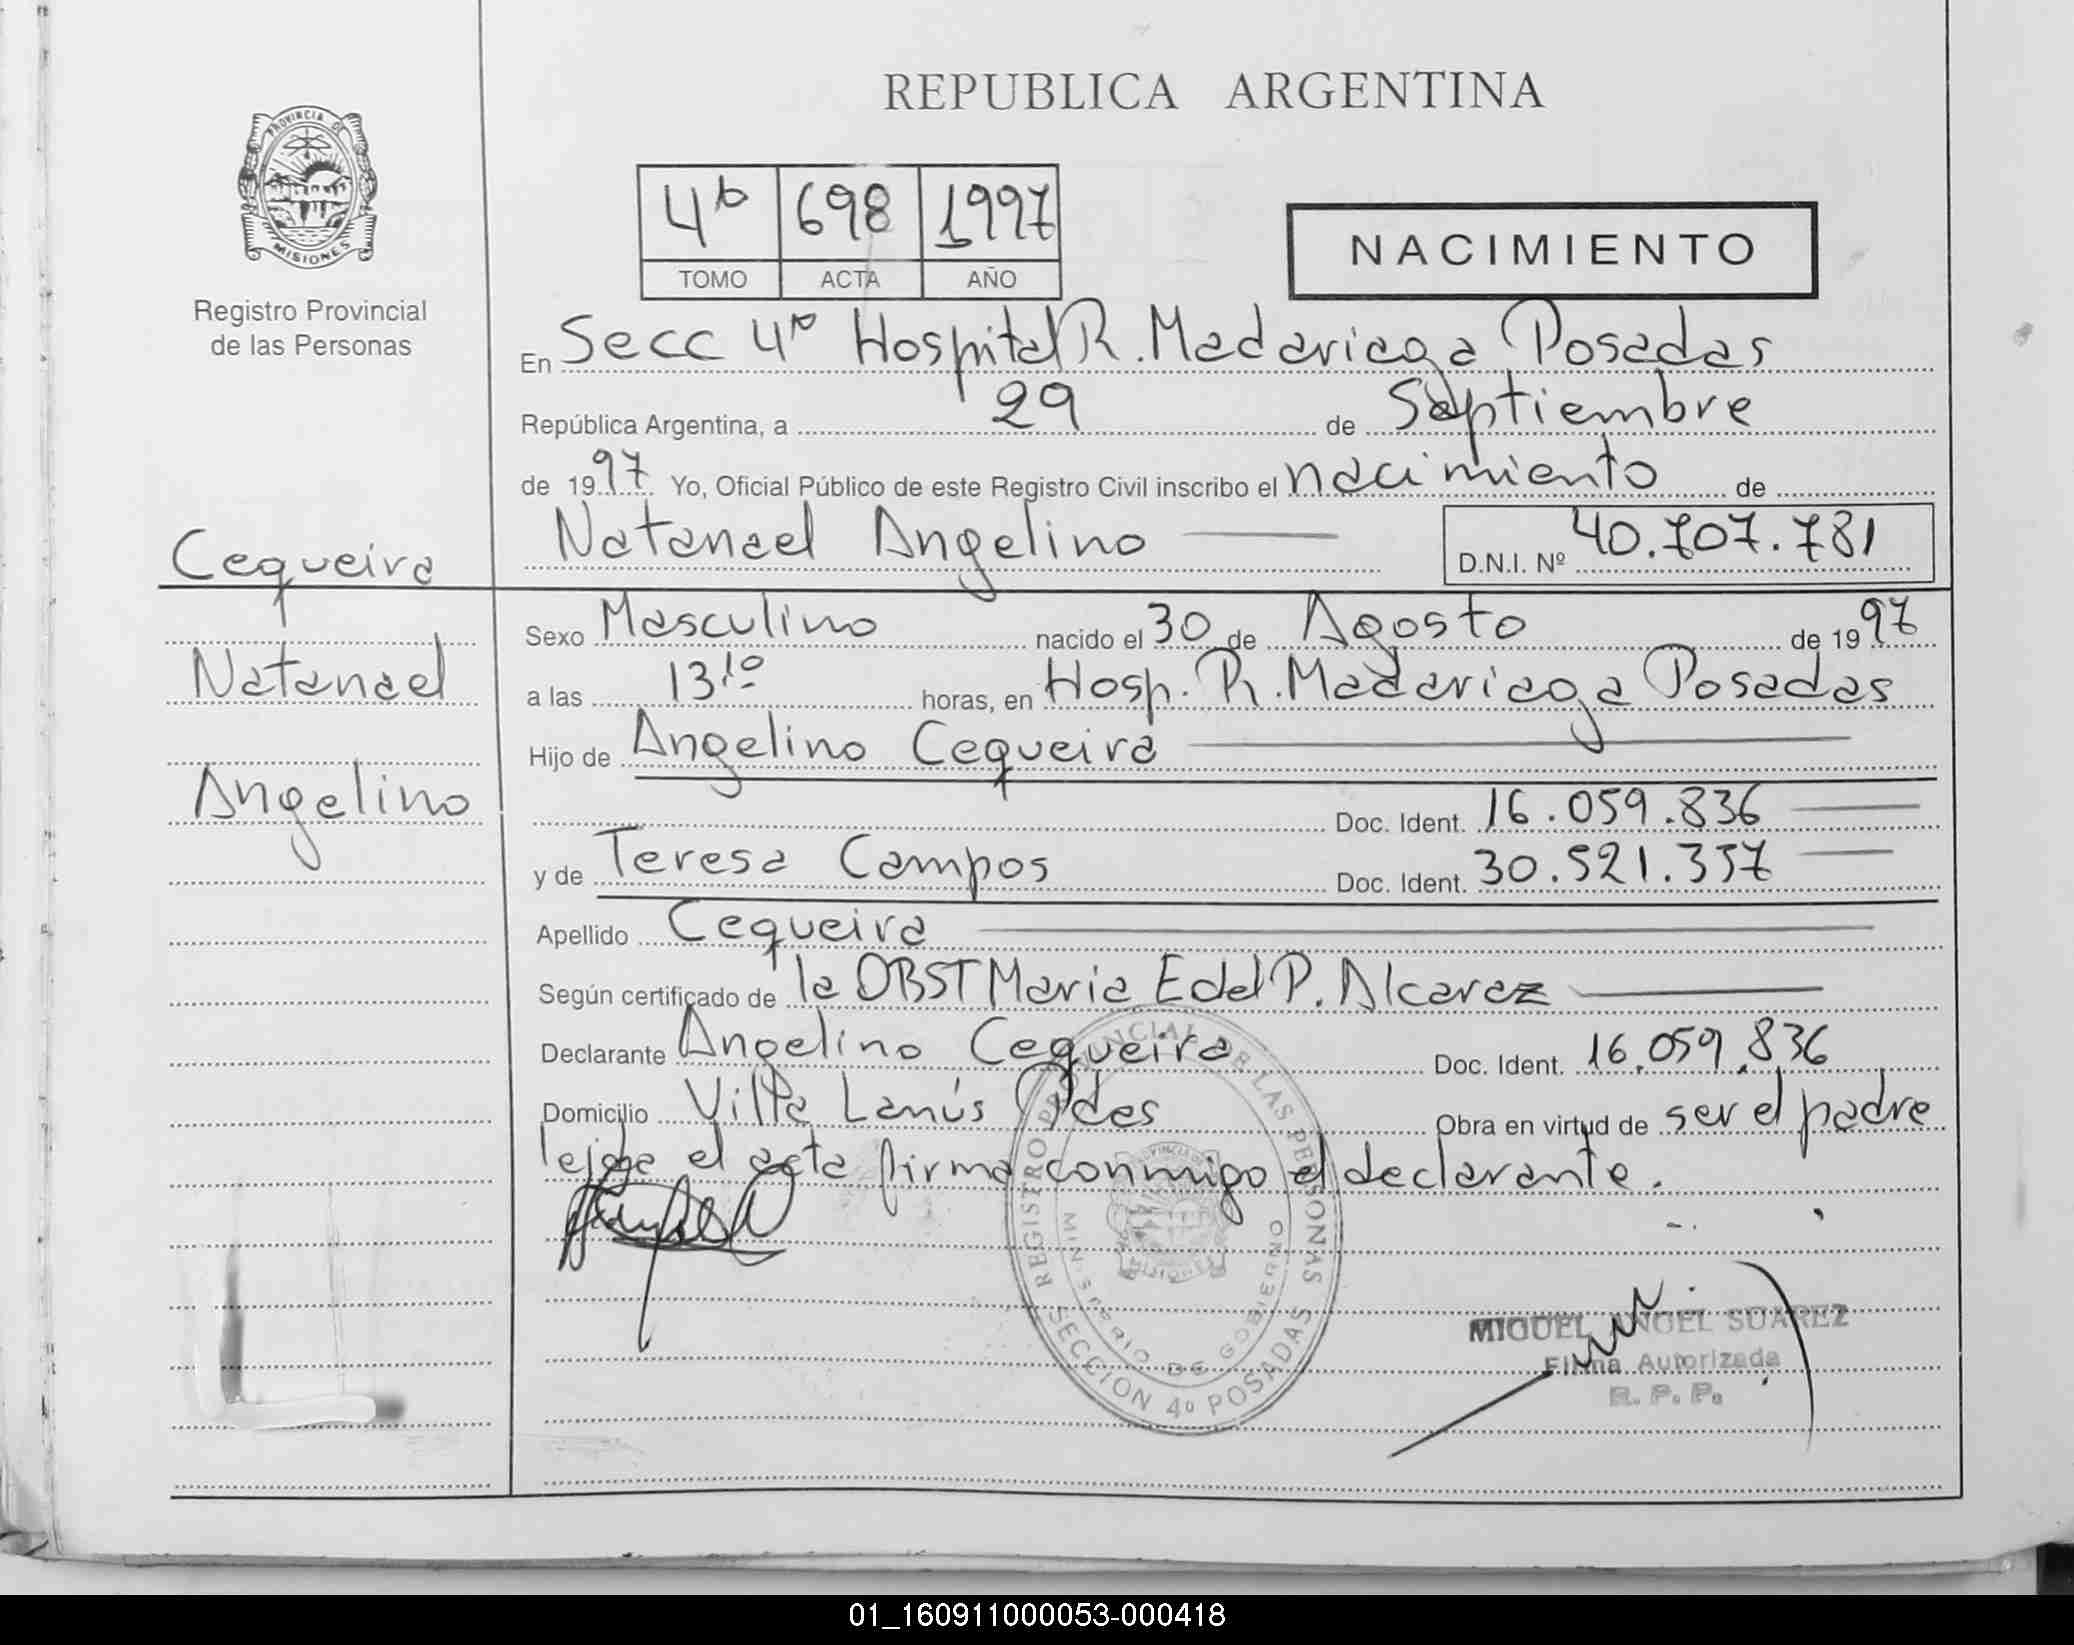 REPUBLICA ARGENTINA
PROVINCIA DE
MISIONES
Registro Provincial
de las Personas
4º 698 1997
TOMO ACTA AÑO
NACIMIENTO
En Secc 4º Hospital R. Madariaga Posadas
República Argentina, a 29 de Septiembre
de 1997 Yo, Oficial Público de este Registro Civil inscribo el nacimiento de
Natanael Angelino D.N.I. Nº 40.707.781
Cequeira
Natanael
Angelino
Sexo Masculino nacido el 30 de Agosto de 1997
a las 13.10 horas, en Hosp. R. Madariaga Posadas
Hijo de Angelino Cequeira
Doc. Ident. 16.059.836
y de Teresa Campos Doc. Ident. 30.521.357
Apellido Cequeira
Según certificado de la OBST Maria Edel P. Alcaraz
Declarante Angelino Cequeira Doc. Ident. 16.059.836
Domicilio Villa Lanús Pdas Obra en virtud de ser el padre
leída el acta firma conmigo el declarante.
REGISTRO PROVINCIAL DE LAS PERSONAS
MINISTERIO DE GOBIERNO
SECCION 4º POSADAS
MIGUEL ANGEL SUAREZ
Firma Autorizada
R. P. P.
01_160911000053-000418